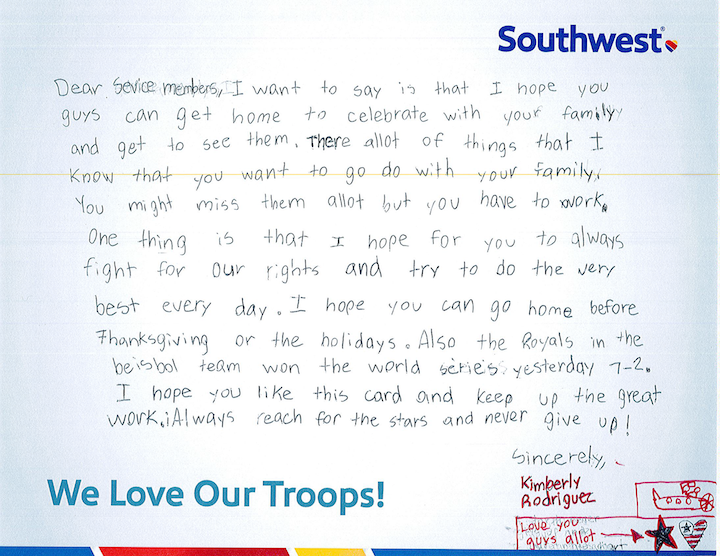 Southwest®
Dear Sevice members, I want to say is that I hope you
guys can get home to celebrate with your family
and get to see them. There allot of things that I
Know that you want to go do with your family.
You might miss them allot but you have to work.
One thing is that I hope for you to always
fight for our rights and try to do the very
best every day. I hope you can go home before
Thanksgiving or the holidays. Also the Royals in the
beisbol team won the world series yesterday 7-2.
I hope you like this card and keep up the great
work.¡Always reach for the stars and never give up!
Sincerely,
Kimberly
Rodriguez
We Love Our Troops!
Love you
guys allot